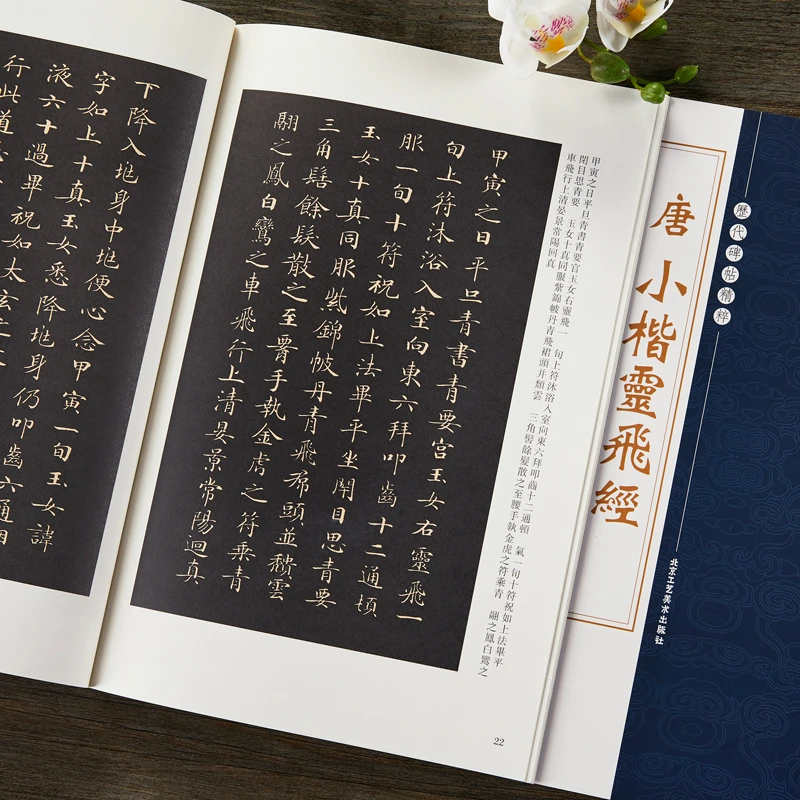 唐 小楷靈飛經
歷代碑帖精粹
北京工艺美术出版社
甲寅之日平旦青書青要宮玉女右靈飛一 旬上符沐浴入室向東六拜叩齒十二通頓 氣一旬十符祝如上法畢平
閉目思青要 玉女十真同服紫錦帔丹青飛裙頭并頹雲 三角髻餘髮散之至腰手執金虎之符乘青 翮之鳳白鸞之
車飛行上清晏景常陽回真
甲寅之日平旦青書青要宮玉女右靈飛一
旬上符沐浴入室向東六拜叩齒十二通頓
服一旬十符祝如上法畢平坐閇目思青要
玉女十真同服紫錦帔丹青飛帬頭並頹雲
三角髻餘髮散之至腰手執金虎之符乘青
翮之鳳白鸞之車飛行上清晏景常陽迴真
22
下降入兆身中兆便心念甲寅一旬玉女諱
字如上十真玉女悉降兆身仍叩齒六通咽
液六十過畢祝如太玄之
行此道